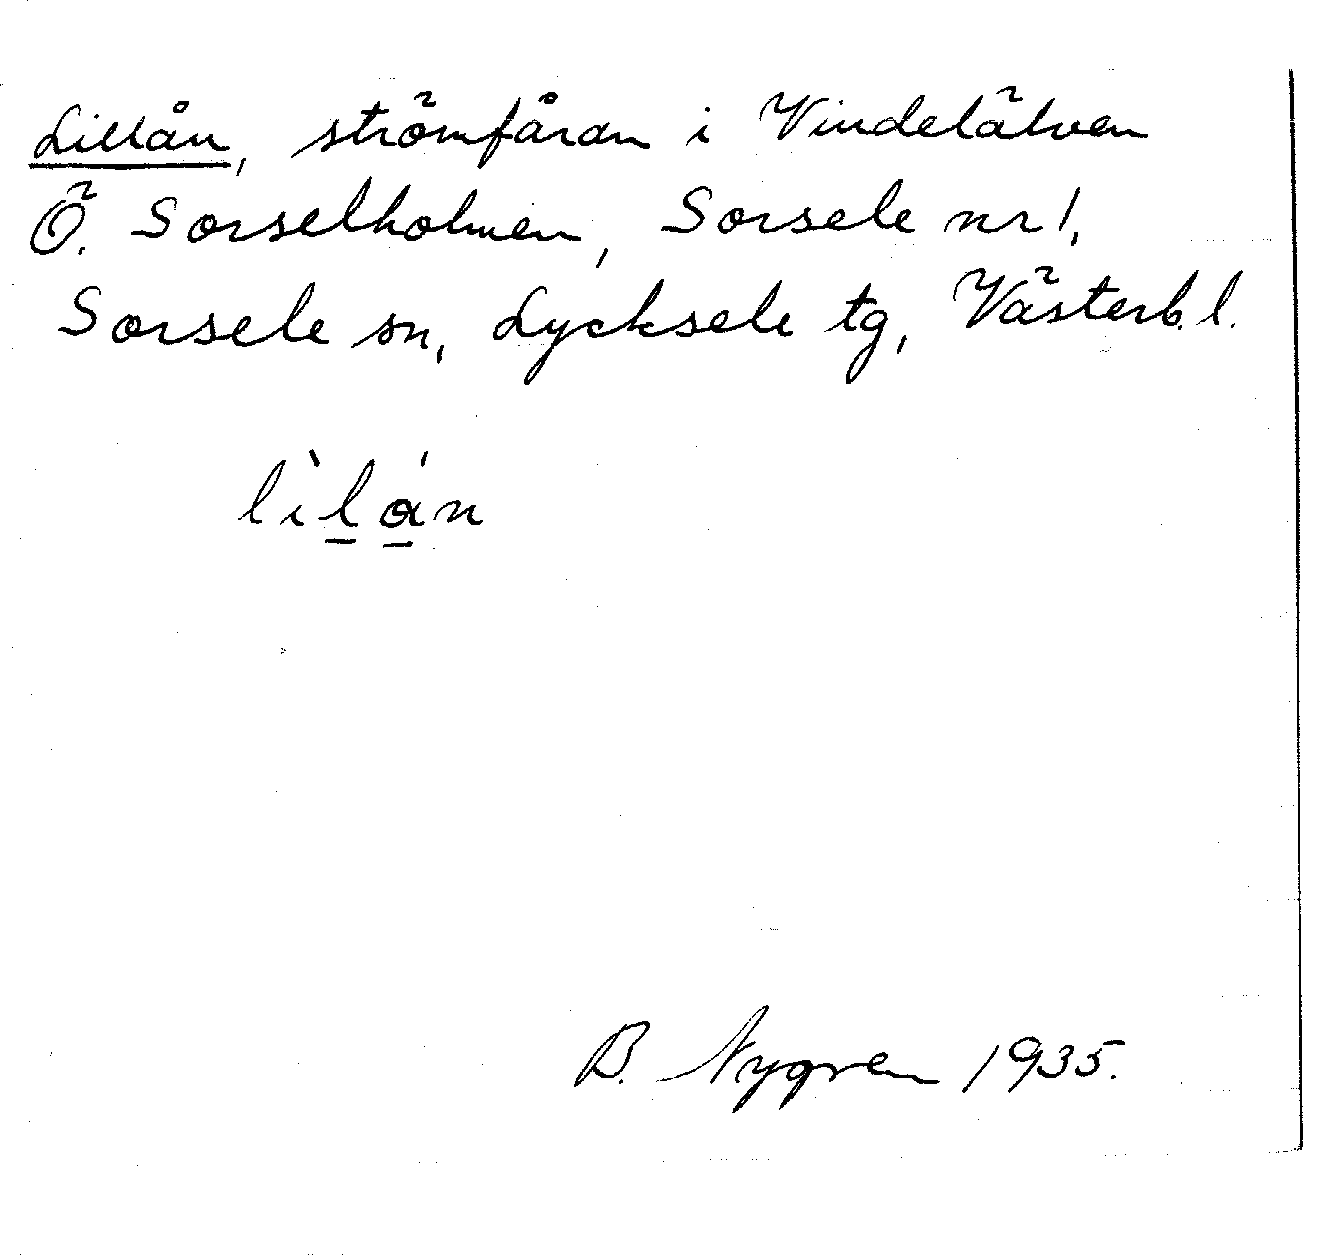 Lillån, strömfåran i Vindelälven
Ö. Sorselholmen, Sorsele nr 1,
Sorsele sn, Lycksele tg, Västerb. l.
lìlán
B. Nygren 1935.